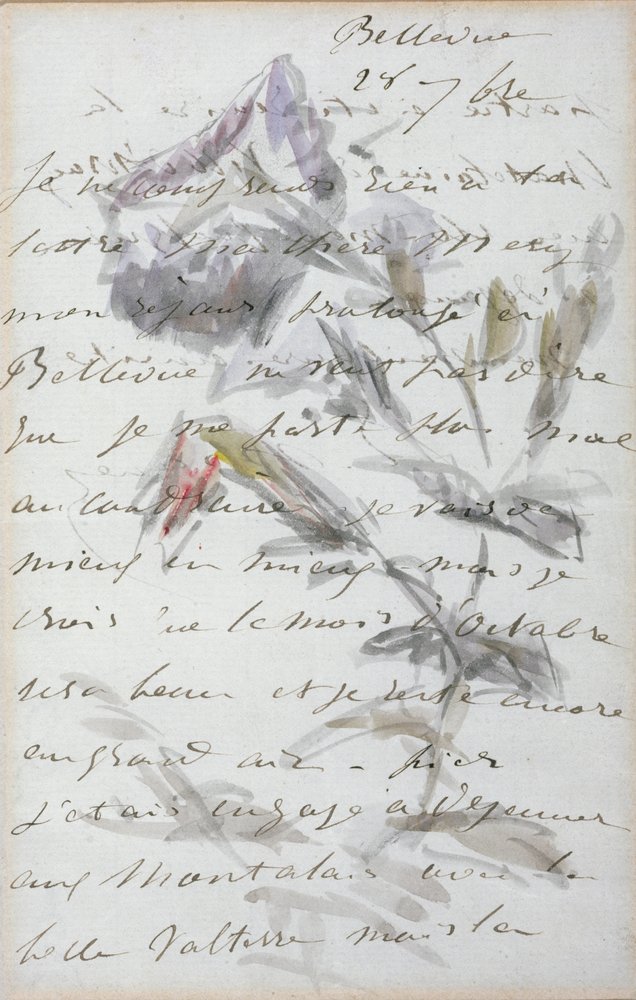 Bellevue
28 7bre
Je ne comprends rien à ta
lettre ma chère Mery
mon séjour prolongé à
Bellevue ne veut pas dire
que je me porte plus mal
au contraire je vais de
mieux en mieux - mais je
crois que le mois d'Octobre
sera beau et je reste encore
au grand air -
j'étais engagé à déjeuner
aux Montalais avec la
belle Valtesse mais la